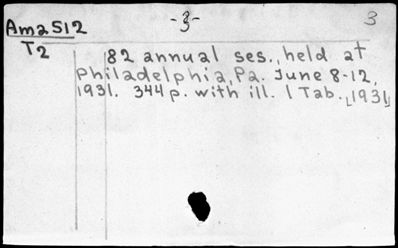 -3-
3
Am2512
T2
82 annual ses., held at
Philadelphia, Pa. June 8-12,
1931. 344 p. with ill. 1 Tab. [1931]